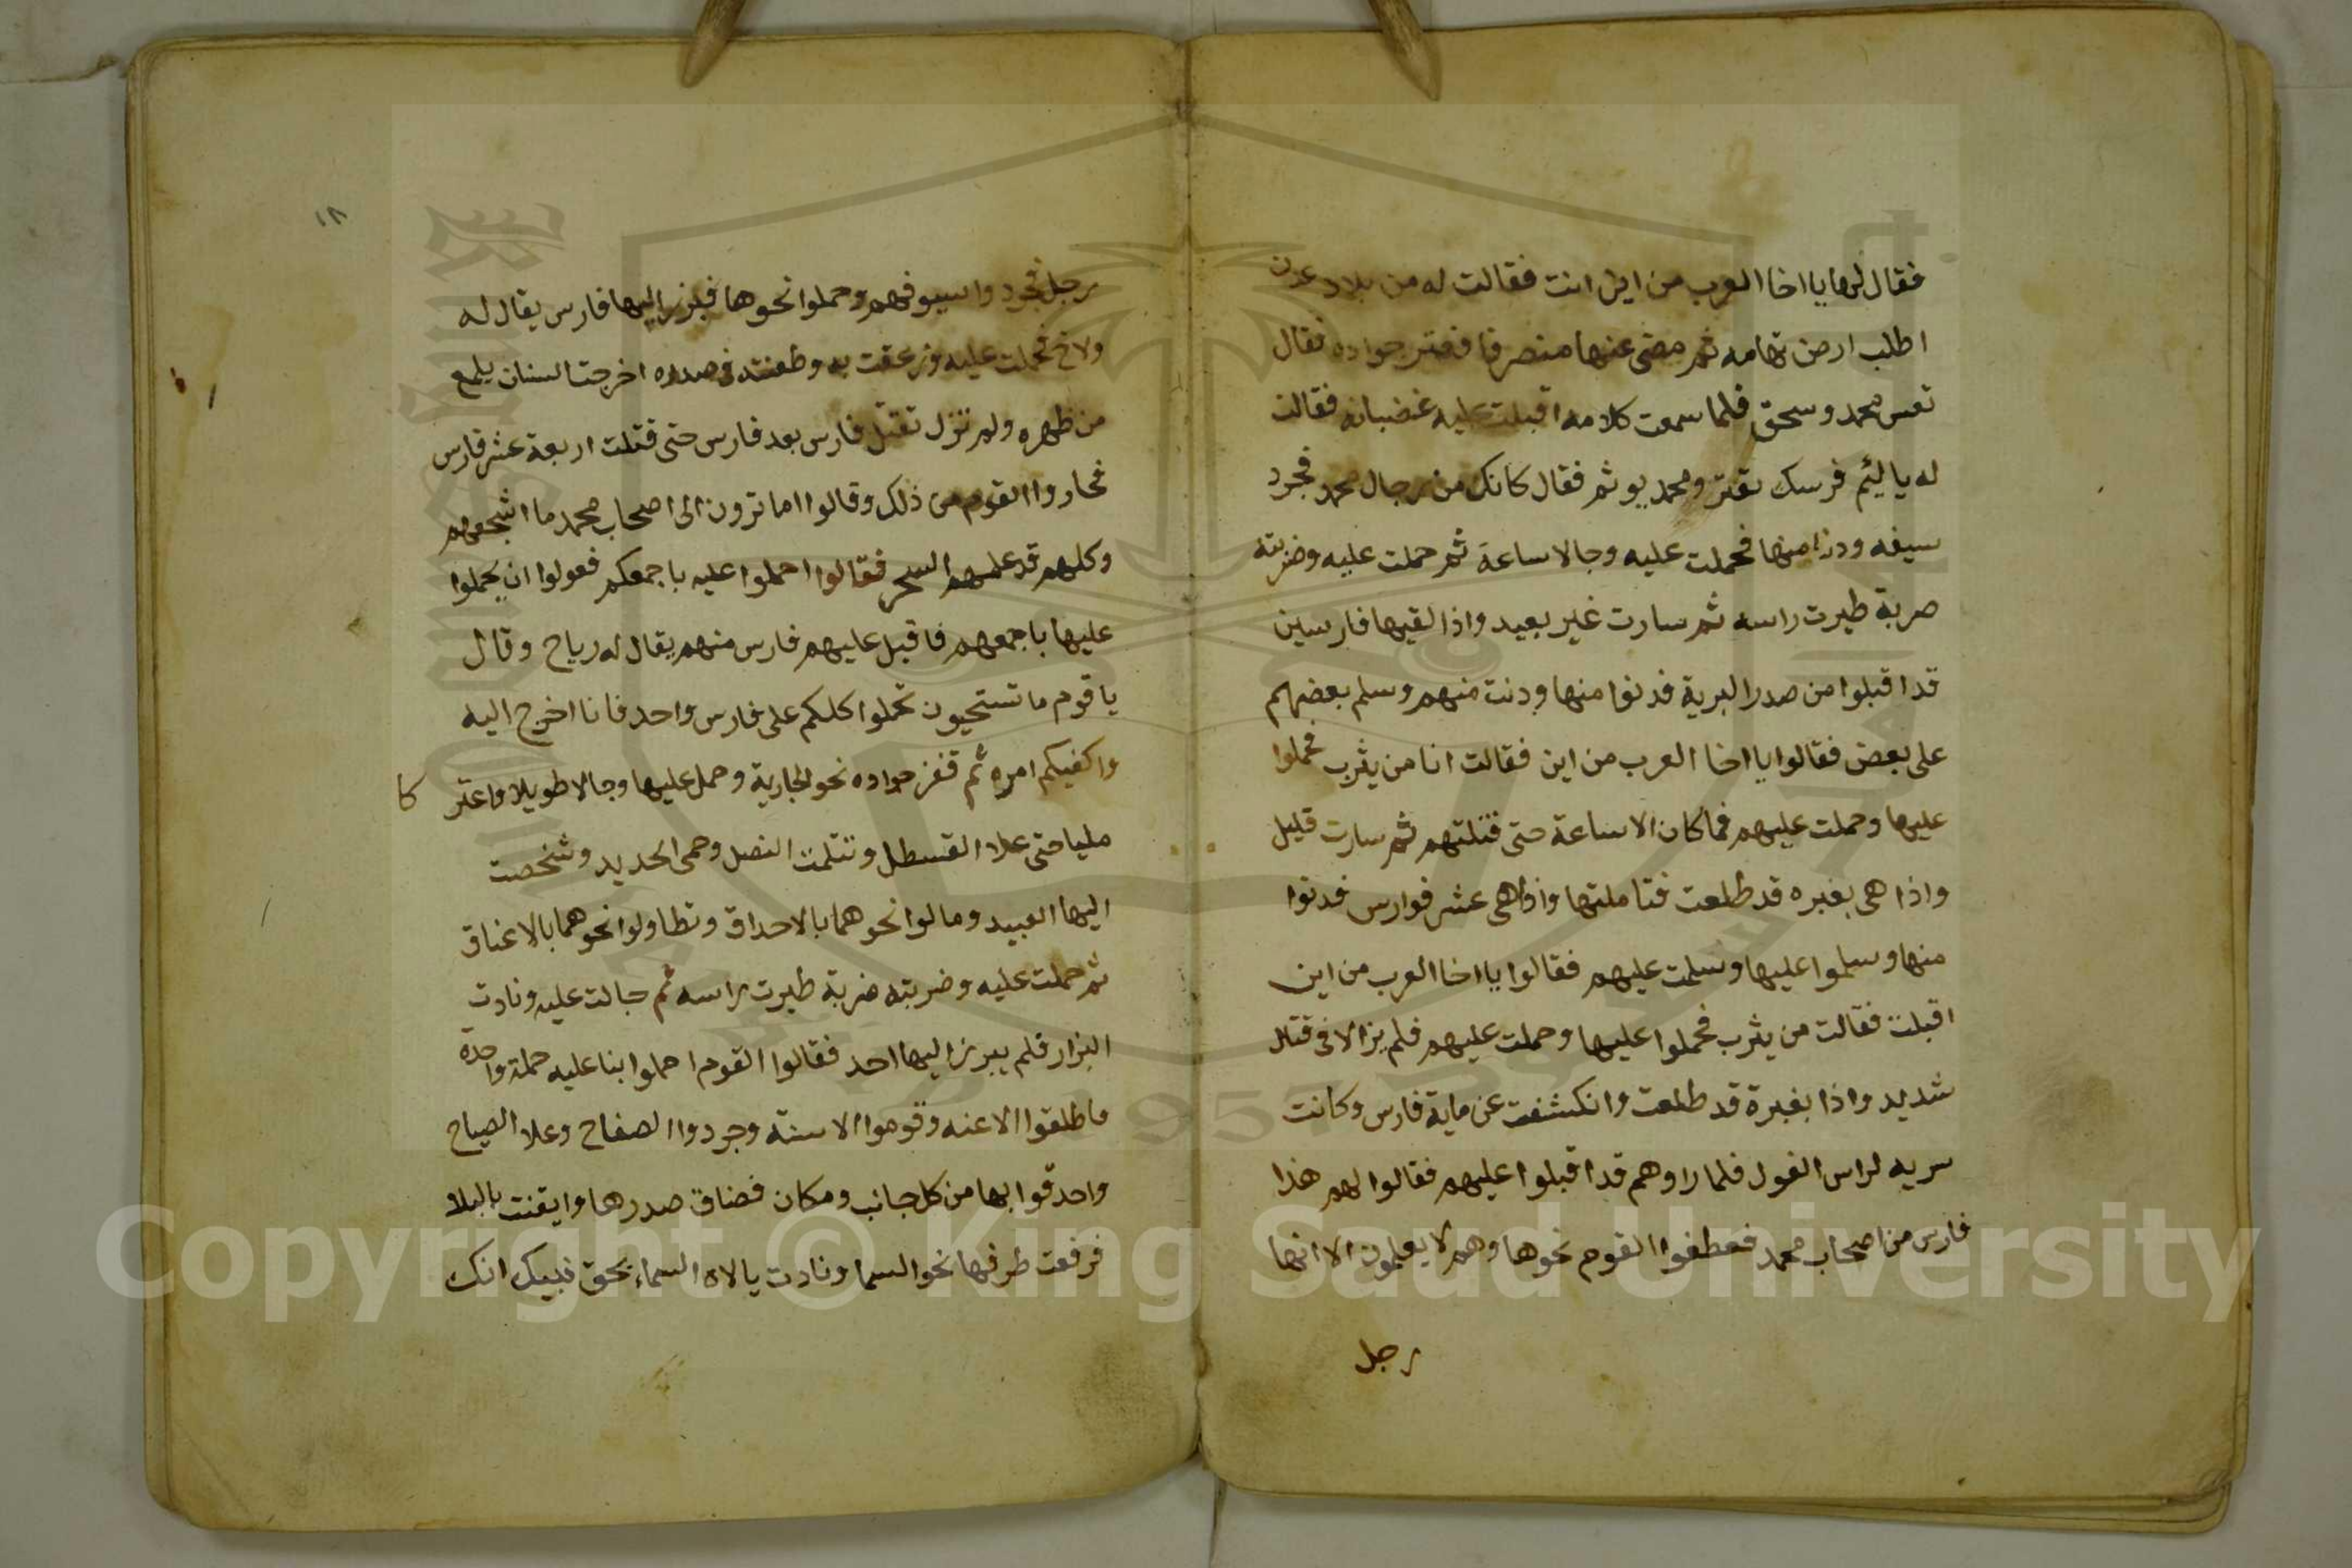 فقال لها يا اخا العرب من اين انت فقالت له من بلاد عدن
اطلب ارض تهامه ثم مضى عنها منصرفا فعتر جواده فقال
تعس محمد وسحق فلما سمعت كلامه اقبلت عليه غضبانه فقالت
له يا ليئم فرسك تعتر ومحمد يوشم فقال كانك من رجال محمد فجرد
سيفه ودنا منها فحملت عليه وجالا ساعة ثم حملت عليه وضربته
ضربة طيرت راسه ثم سارت غير بعيد واذا لقيها فارسين
قد اقبلوا من صدر البرية فدنوا منها ودنت منهم وسلم بعضهم
على بعض فقالوا يا اخا العرب من اين فقالت انا من يثرب فحملوا
عليها وحملت عليهم فما كان الا ساعة حتى قتلتهم ثم سارت قليل
واذا هي بغبره قد طلعت فتاملتها واذا هي عشر فوارس فدنوا
منها وسلموا عليها وسلمت عليهم فقالوا يا اخا العرب من اين
اقبلت فقالت من يثرب فحملوا عليها وحملت عليهم فلم يزالا في قتال
شديد واذا بغبرة قد طلعت وانكشفت عن ماية فارس وكانت
سريه لراس الغول فلما راوهم قد اقبلوا عليهم فقالوا لهم هذا
فارس من اصحاب محمد فعطفوا القوم نحوها وهم لا يعلمون الا انها
رجل
١٨
رجل فجردوا سيوفهم وحملوا نحوها فبرز اليها فارس يقال له
ولاخ فحملت عليه وزعقت به وطعنته في صدره اخرجت السنان يلمع
من ظهره ولم تزل تقتل فارس بعد فارس حتى قتلت اربعة عشر فارس
فحاروا القوم من ذلك وقالوا اما ترون الى اصحاب محمد ما اشجعهم
وكلهم قد علمهم السحر فقالوا احملوا عليه باجمعكم فعولوا ان يحملوا
عليها باجمعهم فاقبل عليهم فارس منهم يقال له رياح وقال
يا قوم ما تستحيون تحملوا كلكم على فارس واحد فانا اخرج اليه
واكفيكم امره ثم قفز جواده نحو الجارية وحمل عليها وجالا طويلا واعتر كا
مليا حتى علا القسطل وتثلمت النصل وحمى الحديد وشخصت
اليها العبيد ومالوا نحوهما بالاحداق وتطاولوا نحوهما بالاعناق
ثم حملت عليه وضربته ضربة طيرت راسه ثم جالت عليه ونادت
البراز فلم يبرز اليها احد فقالوا القوم احملوا بنا عليه حملة واحدة
فاطلقوا الاعنه وقوموا الاسنة وجردوا الصفاح وعلا الصياح
واحدقوا بها من كل جانب ومكان فضاق صدرها وايقنت بالبلا
فرفعت طرفها نحو السما ونادت يا لاه السماء بحق نبيك انك
Copyright © King Saud University